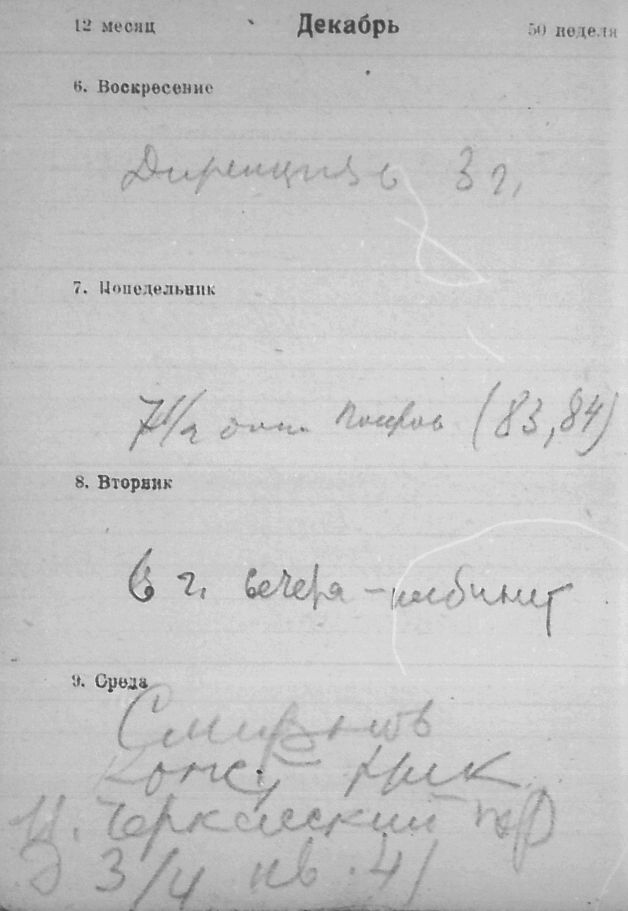 12 месяц Декабрь 50 неделя
6. Воскресение
Дирекция в 3 г.
7. Понедельник
7 1/2 (83, 84)
8. Вторник
6 г. вечера - кабинет
9. Среда
Смирнов
Черкасский пер
Д 3/4 кв. 41